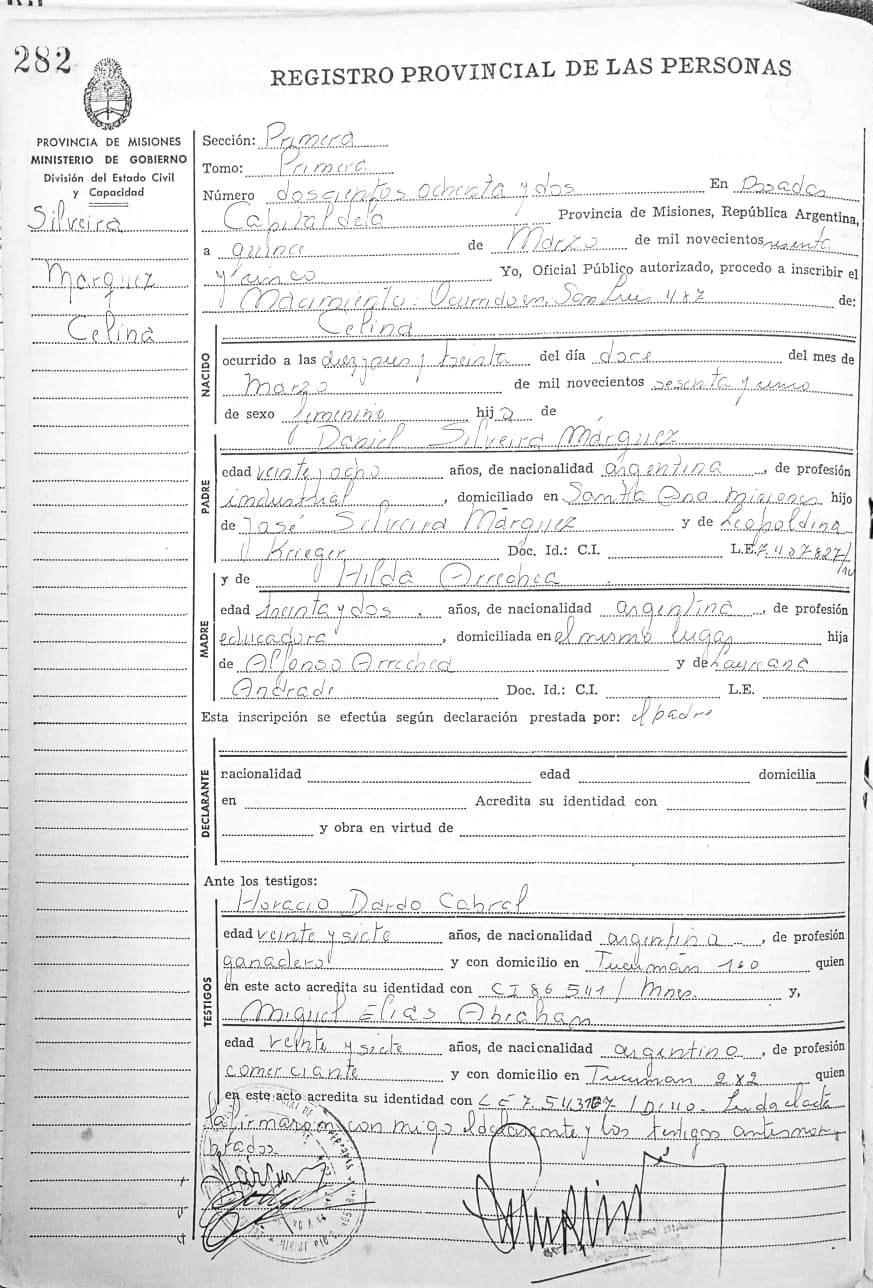 282
REGISTRO PROVINCIAL DE LAS PERSONAS
PROVINCIA DE MISIONES
MINISTERIO DE GOBIERNO
División del Estado Civil
y Capacidad
Silveira
Marquez
Celina
Sección: Primera
Tomo: Primera
Número doscientos ochenta y dos En Posadas
Capital de la Provincia de Misiones, República Argentina,
a quince de Marzo de mil novecientos sesenta
y uno Yo, Oficial Público autorizado, procedo a inscribir el
Nacimiento: Ocurrido en San Luis 487 de:
NACIDO
Celina
ocurrido a las y treinta del día doce del mes de
Marzo de mil novecientos sesenta y uno
de sexo femenino hija de
PADRE
Daniel Silveira Márquez
edad veinte y ocho años, de nacionalidad argentina, de profesión
industrial, domiciliado en Santa Ana Misiones hijo
de José Silveira Márquez y de Leopoldina
Krieger Doc. Id.: C.I. L.E. 7.407.827/
MADRE
y de Hilda Arrechea
edad treinta y dos, años, de nacionalidad argentina, de profesión
educadora, domiciliada en el mismo lugar hija
de Alfonso Arrechea y de Laureana
Andrade Doc. Id.: C.I. L.E.
Esta inscripción se efectúa según declaración prestada por: el padre
DECLARANTE
nacionalidad edad domicilia
en Acredita su identidad con
y obra en virtud de
Ante los testigos:
TESTIGOS
Horacio Dardo Cabral
edad veinte y siete años, de nacionalidad argentina, de profesión
ganadero y con domicilio en Tucumán 160 quien
en este acto acredita su identidad con CI 86541/Mnes. y,
Miguel Elías Abraham
edad veinte y siete años, de nacionalidad argentino, de profesión
comerciante y con domicilio en Tucuman 282 quien
en este acto acredita su identidad con LE 7.543 Leida el acta
la firmaron con migo el declarante y los testigos antes mencio